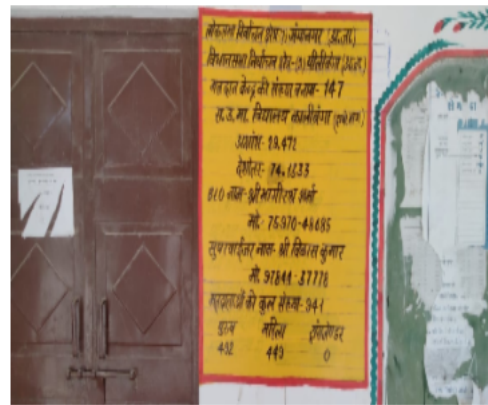 लोकसभा निर्वाचन क्षेत्र:1 गंगानगर (अ.जा.)
विधानसभा निर्वाचन क्षेत्र-(5) पीलीबंगा (अ.जा.)
मतदान केन्द्र की संख्या व नाम- 147
रा.उ.मा. विद्यालय कालीबंगा
अक्षांश- 29.471
देशांतर- 74.1333
BLO नाम- श्री भागीरथ शर्मा
मो.- 75970-48685
सुपरवाईजर नाम- श्री विकास कुमार
मो. 97841-37778
मतदाताओं की कुल संख्या- 941
पुरुष महिला ट्रांसजेण्डर
492 449 0